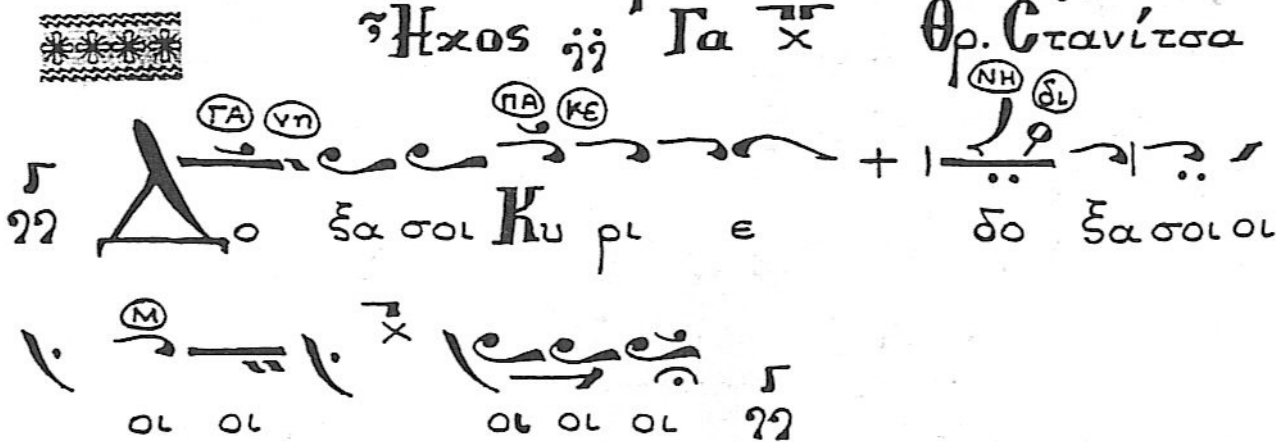 Ἦχος γγ Γα χ Θρ. Στανίτσα
ΓΑ νη ΠΑ ΚΕ ΝΗ δι
γγ Δο ξα σοι Κυ ρι ε + δο ξα σοι οι
Μ χ
οι οι οι οι οι γγ